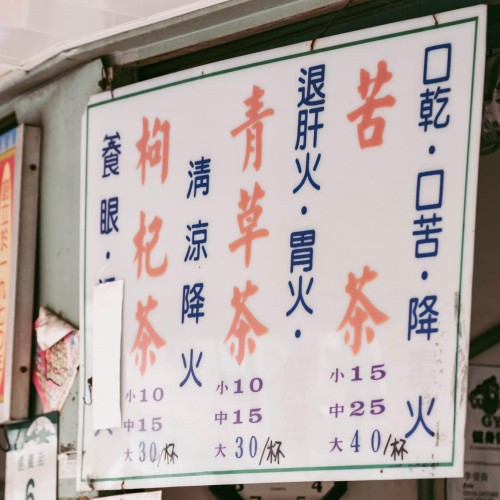 口乾·口苦·降火
苦茶
小15
中25
大40/杯
退肝火·胃火·
青草茶
小10
中15
大30/杯
清涼降火
枸杞茶
小10
中15
大30/杯
養眼·
6